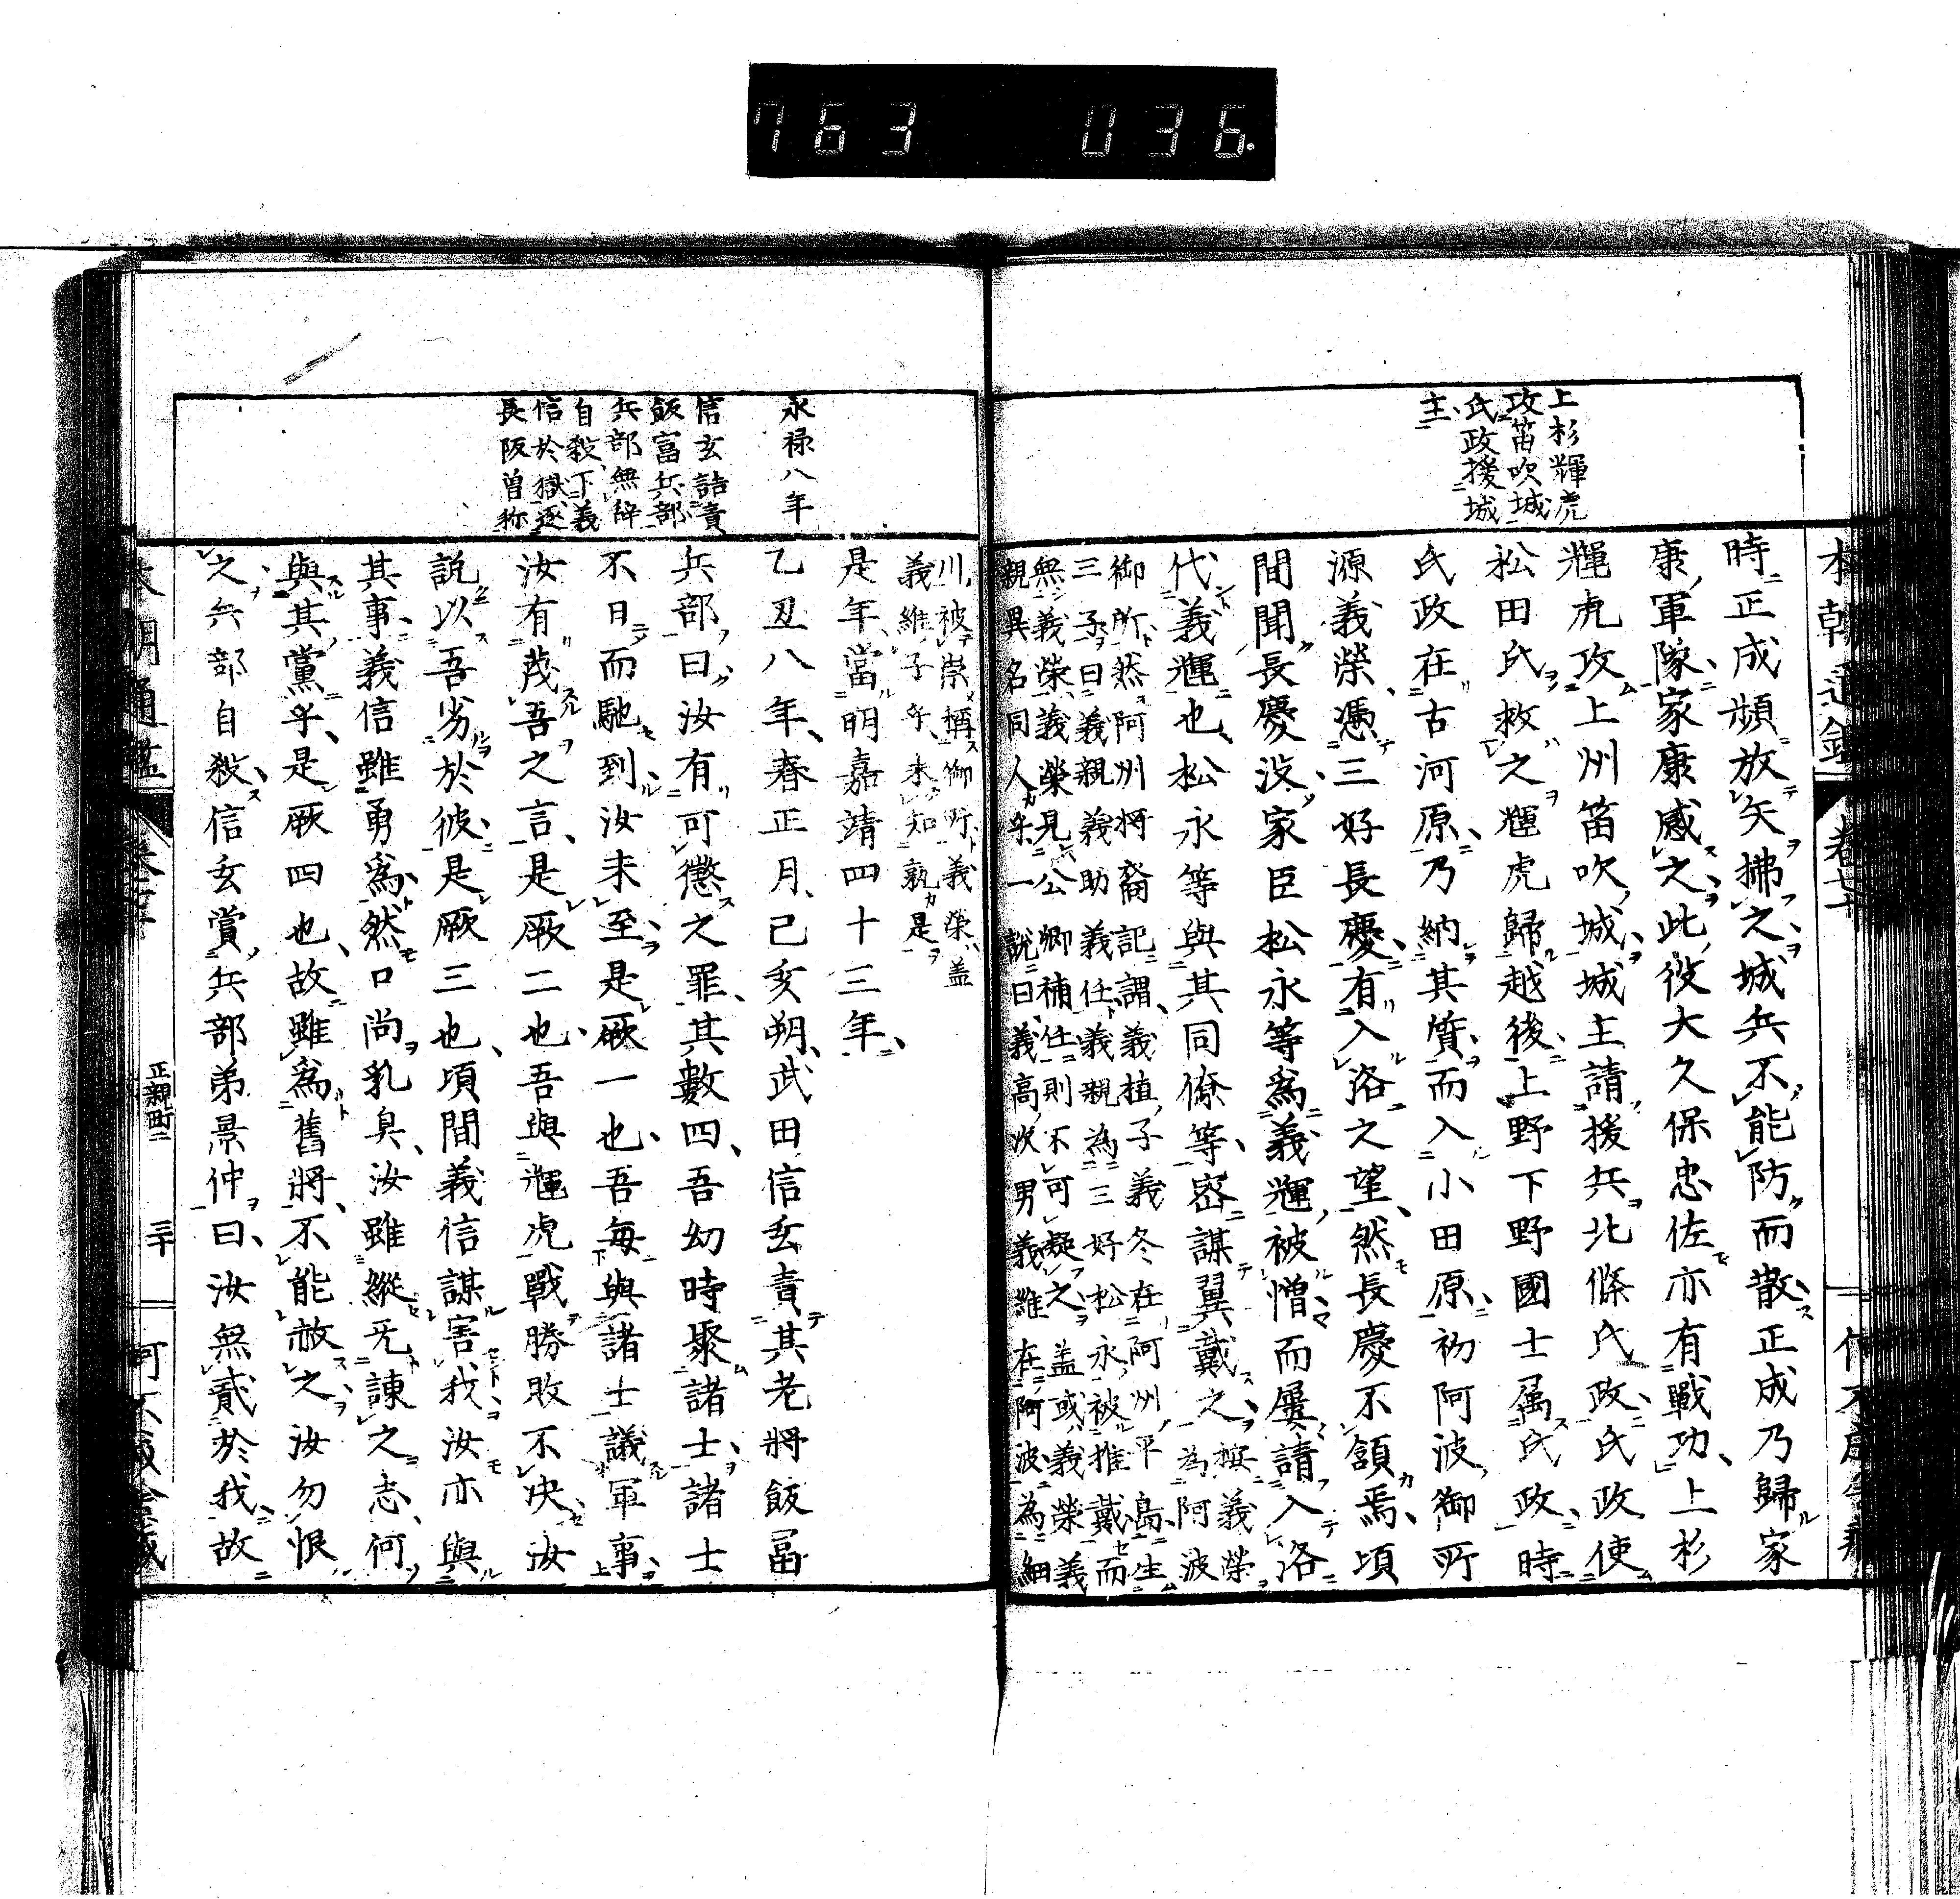 763 036
上杉輝虎
攻笛吹城
氏政援城
主
時正成頻放矢拂之城兵不能防而散正成乃歸家
康軍隊家康感之此役大久保忠佐亦有戰功上杉
輝虎攻上州笛吹城城主請援兵北條氏政氏政使
松田氏救之輝虎歸越後上野下野國士属氏政時
氏政在古河原乃納其質而入小田原初阿波御所
源義榮憑三好長慶有入洛之望然長慶不頷焉頃
間聞長慶没家臣松永等爲義輝被憎而屢請入洛
代義輝也松永等與其同僚等密謀翼戴之按義榮
為阿波
御所然阿州將裔記謂義植子義冬在阿州平島生
三子曰義親義助義任義親為三好松永被推戴而
無義榮義榮見公卿補任則不可疑之盖或義榮義
親異名同人乎一說曰義高次男義維在阿波為細
川被崇稱御所義榮盖
義維子乎未知孰是
永禄八年
信玄詰責
飯富兵部
兵部無辞
自殺下義
信於獄逐
長阪曽称
是年當明嘉靖四十三年
乙丑八年春正月己亥朔武田信玄責其老將飯富
兵部曰汝有可懲之罪其數四吾幼時聚諸士諸士
不日而馳到汝未至是厥一也吾每與諸士議軍事
汝有蔑吾之言是厥二也吾與輝虎戰勝敗不决汝
說以吾劣於彼是厥三也頃間義信謀害我汝亦與
其事義信雖勇爲然口尚乳臭汝雖縱无諌之志何
與其黨乎是厥四也故雖爲舊將不能赦之汝勿恨
之兵部自殺信玄賞兵部弟景仲曰汝無貳於我故
正親町二 三十